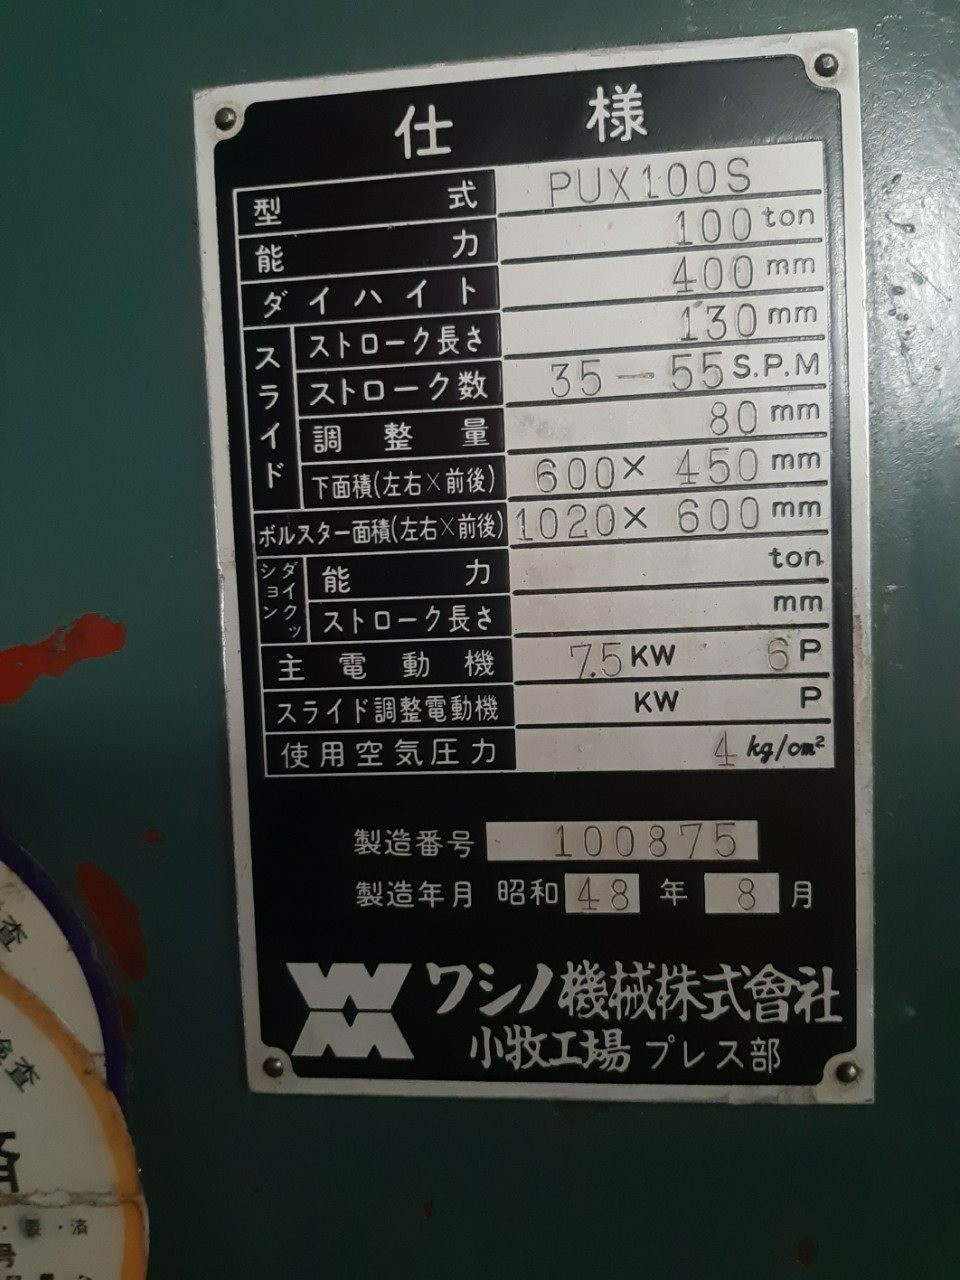 仕様
型式 PUX100S
能力 100 ton
ダイハイト 400 mm
スライド
ストローク長さ 130 mm
ストローク数 35-55 S.P.M
調整量 80 mm
下面積(左右×前後) 600×450 mm
ボルスター面積(左右×前後) 1020×600 mm
ダイクッション
能力 ton
ストローク長さ mm
主電動機 7.5 KW 6 P
スライド調整電動機 KW P
使用空気圧力 4 kg/cm²
製造番号 100875
製造年月 昭和 48 年 8 月
ワシノ機械株式會社
小牧工場 プレス部
査
検査
済
号